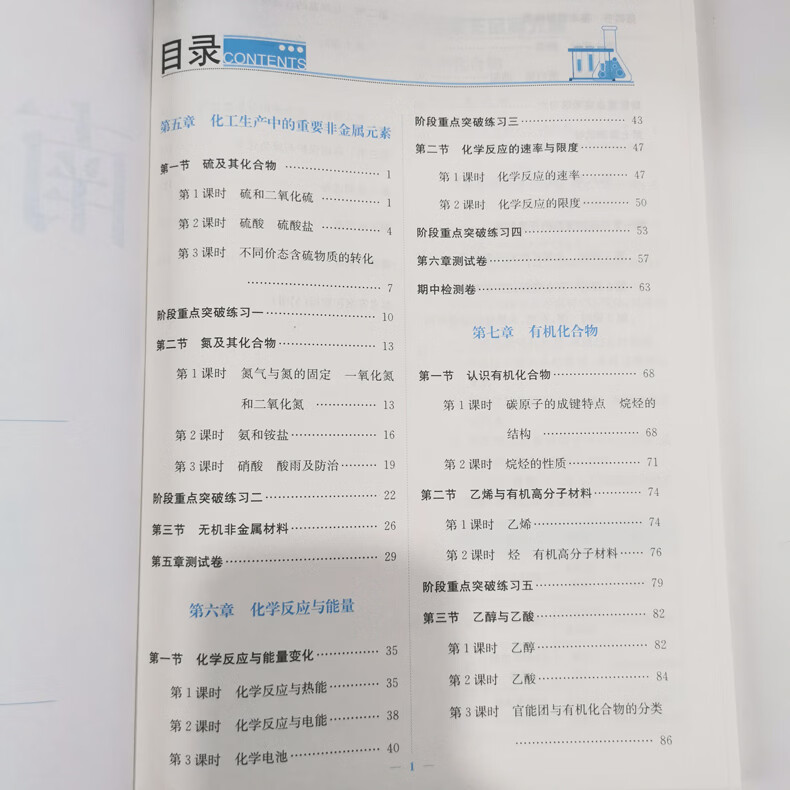 目录
CONTENTS
第五章 化工生产中的重要非金属元素
第一节 硫及其化合物 ………………… 1
第1课时 硫和二氧化硫 …………… 1
第2课时 硫酸 硫酸盐 …………… 4
第3课时 不同价态含硫物质的转化
………………………… 7
阶段重点突破练习一………………… 10
第二节 氮及其化合物………………… 13
第1课时 氮气与氮的固定 一氧化氮
和二氧化氮 …………… 13
第2课时 氨和铵盐………………… 16
第3课时 硝酸 酸雨及防治……… 19
阶段重点突破练习二………………… 22
第三节 无机非金属材料……………… 26
第五章测试卷………………………… 29
第六章 化学反应与能量
第一节 化学反应与能量变化………… 35
第1课时 化学反应与热能………… 35
第2课时 化学反应与电能………… 38
第3课时 化学电池………………… 40
阶段重点突破练习三………………… 43
第二节 化学反应的速率与限度……… 47
第1课时 化学反应的速率………… 47
第2课时 化学反应的限度………… 50
阶段重点突破练习四………………… 53
第六章测试卷………………………… 57
期中检测卷…………………………… 63
第七章 有机化合物
第一节 认识有机化合物……………… 68
第1课时 碳原子的成键特点 烷烃的
结构 ………………… 68
第2课时 烷烃的性质……………… 71
第二节 乙烯与有机高分子材料……… 74
第1课时 乙烯……………………… 74
第2课时 烃 有机高分子材料…… 76
阶段重点突破练习五………………… 79
第三节 乙醇与乙酸…………………… 82
第1课时 乙醇……………………… 82
第2课时 乙酸……………………… 84
第3课时 官能团与有机化合物的分类
………………………… 86
— 1 —